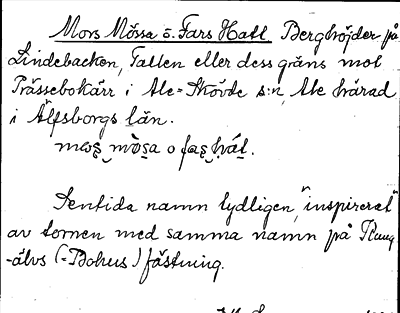 Mors Mössa o. Fars Hatt Berghöjder på
Lindebacken, Tallen eller dess gräns mot
Prässebokärr i Ale-Skövde s:n, Ale härad
i Älfsborgs län.
mo̱s̱ mö̀s̱a o fas̱ hát.
Sentida namn tydligen "inspirerat"
av tornen med samma namn på Kung
-älvs (-Bohus) fästning.